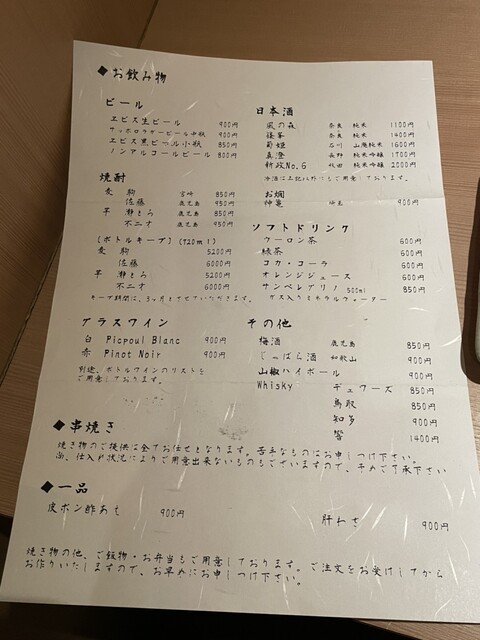 ◆お飲み物
ビール
ヱビス生ビール 900円
サッポロラガービール中瓶 900円
ヱビス黒ビール小瓶 850円
ノンアルコールビール 800円
焼酎
麦 駒 宮崎 850円
佐藤 鹿児島 950円
芋 瀞とろ 鹿児島 850円
不二才 鹿児島 950円
(ボトルキープ)(720ml)
麦 駒 5200円
佐藤 6000円
芋 瀞とろ 5200円
不二才 6000円
キープ期間は、3ヶ月とさせていただきます。
グラスワイン
白 Picpoul Blanc 900円
赤 Pinot Noir 900円
別途、ボトルワインのリストを
ご用意しております。
日本酒
風の森 奈良 純米 1100円
篠峯 奈良 純米 1400円
菊姫 石川 山廃純米 1600円
真澄 長野 純米吟醸 1700円
新政No.6 秋田 純米吟醸 2000円
冷酒は上記以外にもご用意しております。
お燗
神亀 埼玉 900円
ソフトドリンク
ウーロン茶 600円
緑茶 600円
コカ・コーラ 600円
オレンジジュース 600円
サンペレグリノ 500ml 850円
ガス入りミネラルウォーター
その他
梅酒 鹿児島 850円
じゃばら酒 和歌山 900円
山椒ハイボール 900円
Whisky デュワーズ 850円
鳥取 850円
知多 900円
響 1400円
◆串焼き
焼き物のご提供は全てお任せとなります。苦手なものはお申しつけ下さい。
尚、仕入れ状況によりご用意出来ないものもございますので、ご了承下さい
◆一品
皮ポン酢あえ 900円
肝わさ 900円
焼き物の他、ご飯物・お弁当もご用意しております。ご注文をお受けしてから
お作りいたしますので、お早めにお申しつけ下さい。